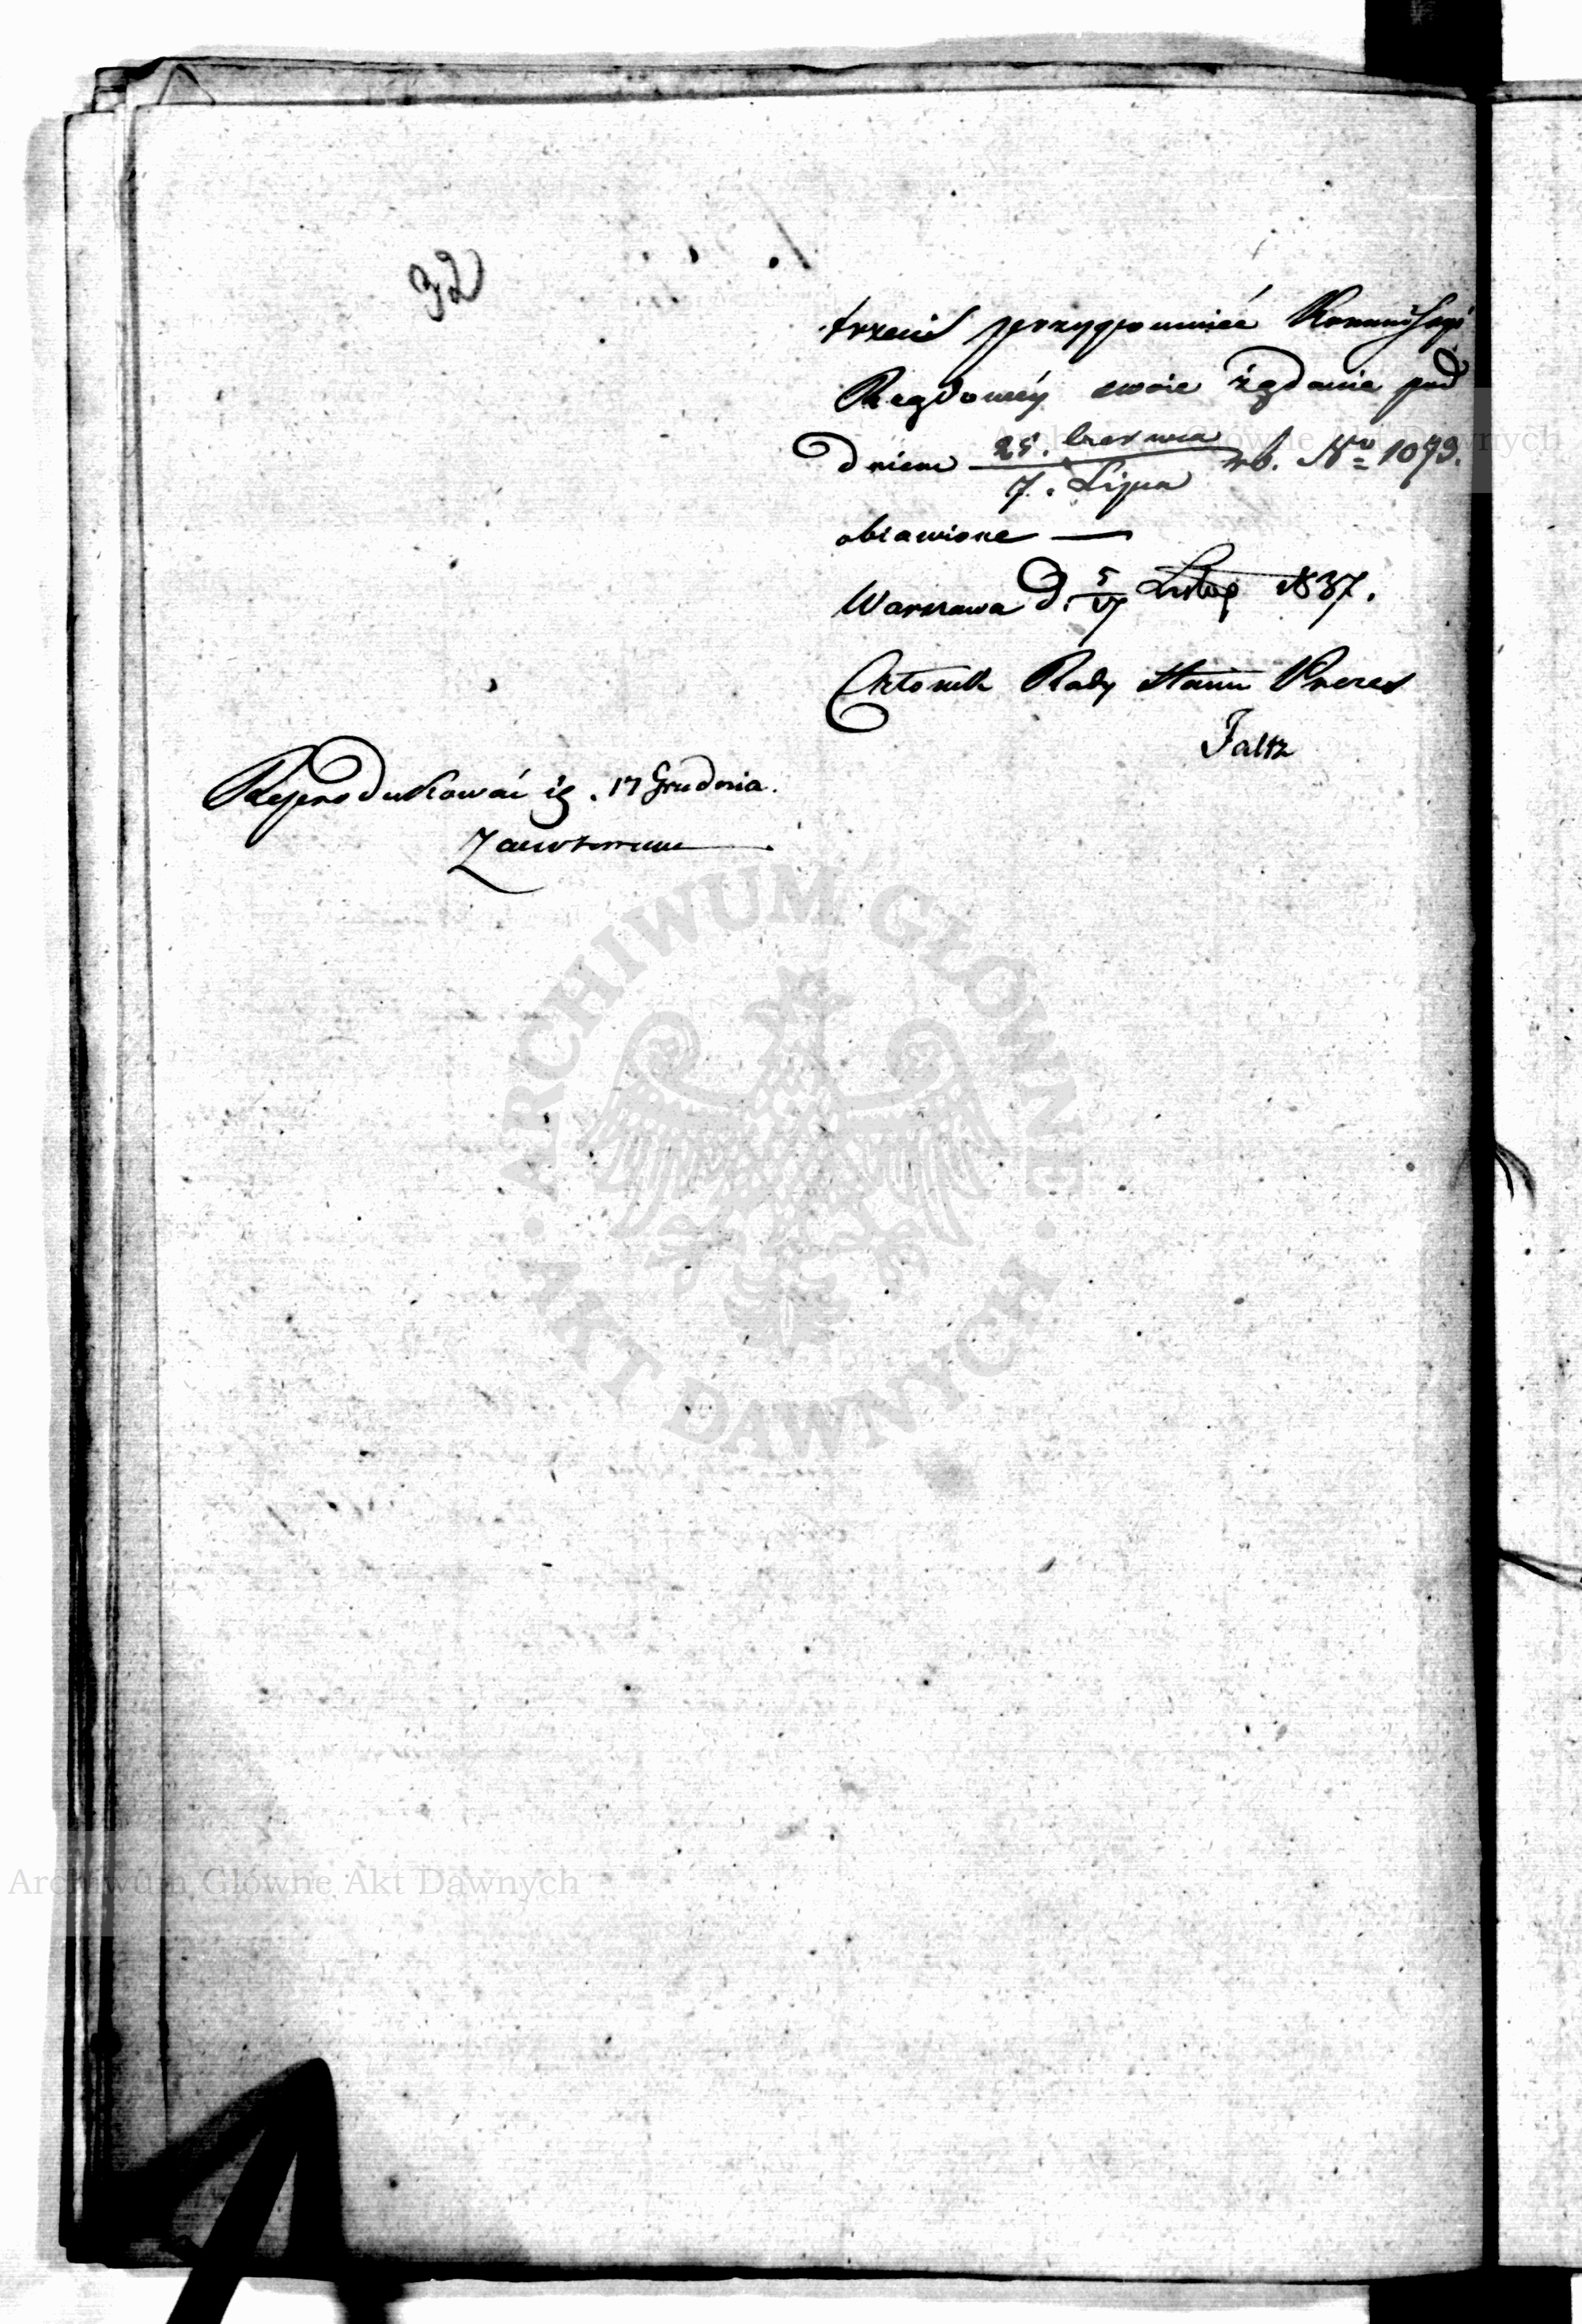 32
trzeciś przypomnieć Kommissyi
Rządowéy swoie żądanie pod
dniem 25. Czerwca / 7. Lipca rb. No 1079.
obiawione —
Warszawa d. 5/17 Listop 1837.
Członek Rady Stanu Prezes
Faltz
Reprodukować ig. 17 Grudnia.
ARCHIWUM GŁÓWNE
AKT DAWNYCH
Archiwum Główne Akt Dawnych
Archiwum Główne Akt Dawnych